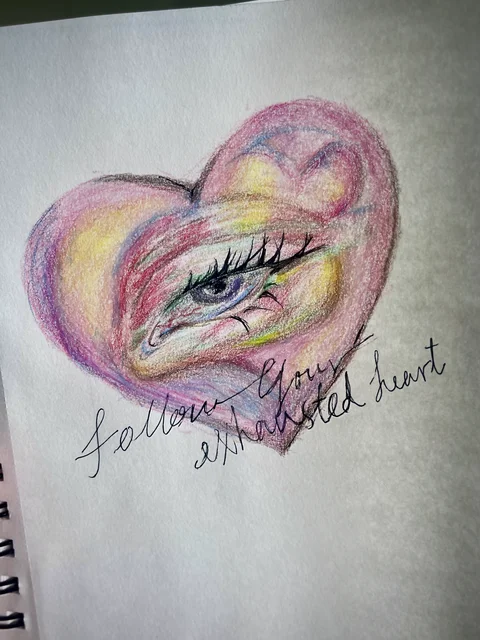 Follow Your
exhausted heart